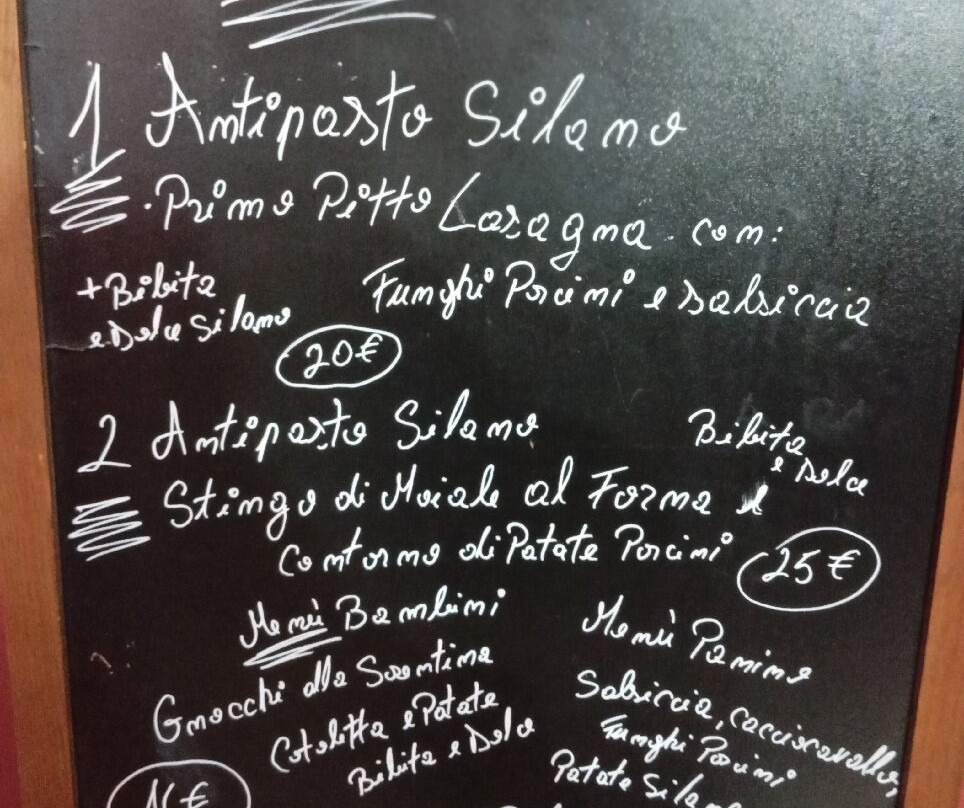 1 Antipasto Silano
. Primo Pitto Lasagna con:
Funghi Porcini e salsiccia
+ Bibita
e Dolce Silano
20€
2 Antipasto Silano
Stingo di Maiale al Forma e
contorno di Patate Porcini
Bibita
e Dolce
25€
Menù Bambini
Gnocchi alla Sorrentina
Cotoletta e Patate
Bibita e Dolce
Menù Panino
Salsiccia, caciocavallo,
Funghi Porcini
Patate